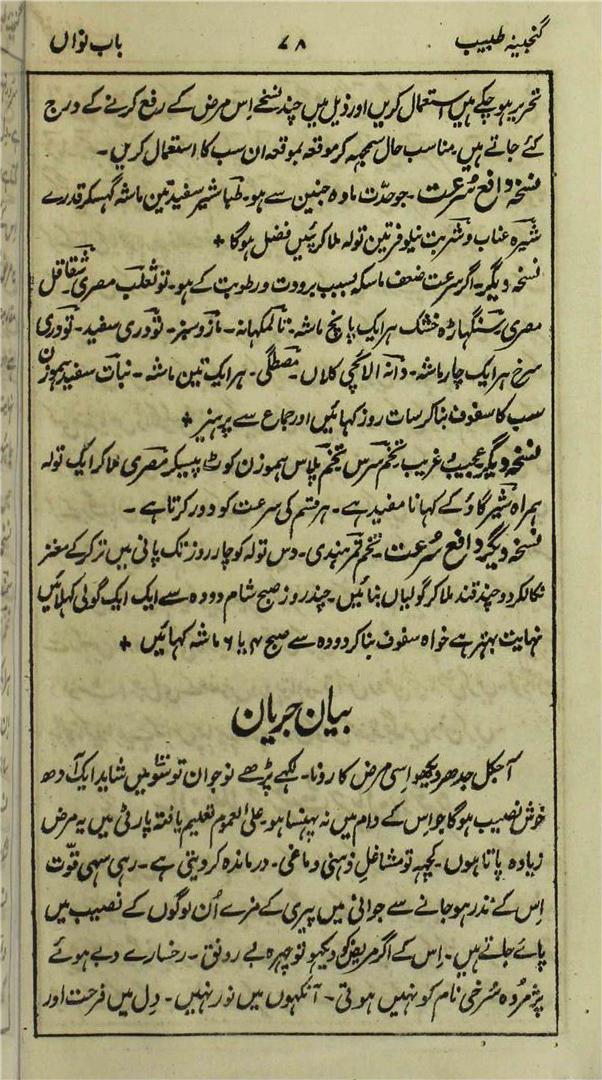 گنجینہ طبیب ۷۸ باب نواں
تحریر ہو چکے ہیں استعمال کریں اور ذیل میں چند نسخے اس مرض کے رفع کرنے کے درج
کئے جاتے ہیں مناسب حال سمجہہ کر موقعہ بموقعہ ان سب کا استعمال کریں۔
نسخہ دافع سُرعت۔ جو حدّت مادہ جنین سے ہو۔ طباشیر سفید تین ماشہ گہسکر قدرے
شیرہ عناب و شربت نیلوفر تین تولہ ملا کر پئیں فضل ہوگا +
نسخہ دیگر۔ اگر سرعت ضعف ماسکہ بسبب برودت و رطوبت کے ہو۔ تو ثعلب مصری شقاقل
مصری سنگہاڑہ خشک ہر ایک پانچ ماشہ۔ تالمکہانہ۔ مازو سبز۔ تودری سفید۔ تودری
سرخ ہر ایک چار ماشہ۔ دانہ الائچی کلاں۔ مصطگی۔ ہر ایک تین ماشہ۔ نبات سفید ہموزن
سب کا سفوف بنا کر سات روز کہائیں اور جماع سے پرہیز +
نسخہ دیگر عجیب و غریب۔ تخم سرس تخم پلاس ہموزن کوٹ پیسکر مصری ملا کر ایک تولہ
ہمراہ شیر گاؤ کے کہانا مفید ہے۔ ہر قسم کی سرعت کو دور کرتا ہے۔
نسخہ دیگر دافع سُرعت۔ تخم تمر ہندی۔ دس تولہ کو چار روز تک پانی میں تر کر کے مغز
نکالکر دو چند قند ملا کر گولیاں بنائیں۔ چند روز صبح شام دودہ سے ایک ایک گولی کہلائیں
نہایت بہتر ہے خواہ سفوف بنا کر دودہ سے صبح ۴ یا ۶ ماشہ کہائیں +
بیان جریان
آجکل جدھر دیکھو اسی مرض کا رونا۔ لکہے پڑھے نوجوان تو سَو میں شاید ایک آدھ
خوش نصیب ہوگا جو اس کے دام میں نہ پہنسا ہو۔ علی العموم تعلیم یافتہ پارٹی میں یہ مرض
زیادہ پاتا ہوں۔ کچہہ تو مشاغل ذہنی دماغی۔ درماندہ کر دیتی ہے۔ رہی سہی قوّت
اِس کے نذر ہو جانے سے جوانی میں پیری کے مزے اُن لوگوں کے نصیب میں
پائے جاتے ہیں۔ اِس کے اگر مریض کو دیکہو تو چہرہ بے رونق۔ رخسارے دبے ہوئے
پژمردہ سُرخی نام کو نہیں ہوتی۔ آنکہوں میں نور نہیں۔ دِل میں فرحت اور